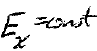 Eₓ = const